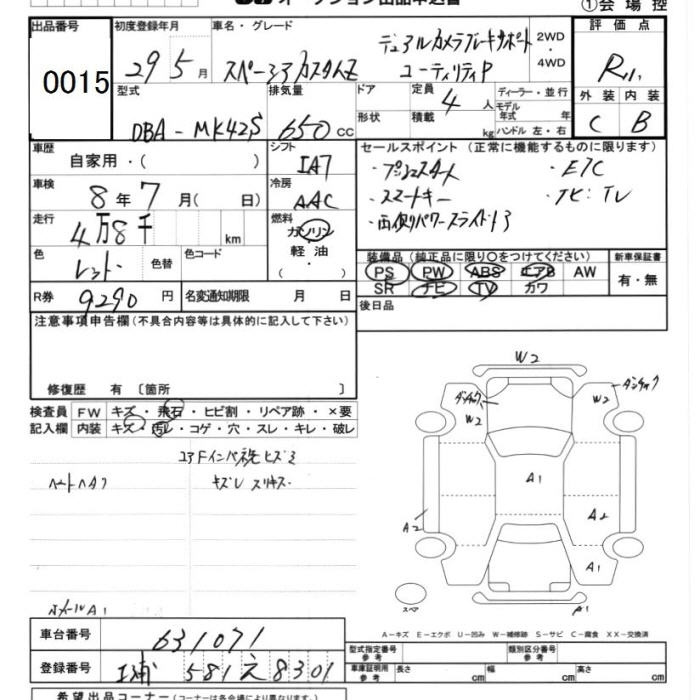 オークション出品申込書
①会場控
出品番号 初度登録年月 車名・グレード 評価点
0015
デュアルカメラブレーキサポート
29 5月 スペーシアカスタムZ ユーティリティP 2WD
・4WD
R
型式 排気量 ドア 定員 4人 ディーラー・並行
モデル年式 年
外装 内装
DBA-MK42S 650cc 形状 積載 kg ハンドル 左・右
C B
車歴 自家用・( )
シフト IA7
セールスポイント(正常に機能するものに限ります)
・プッシュスタート ・ETC
車検 8年7月( 日) 冷房 AAC
・スマートキー ・ナビ:TV
・両側パワースライドドア
走行 4万8千 km
燃料 ガソリン
軽油
色 レッド 色替 色コード
装備品(純正品に限り○をつけてください) 新車保証書
PS PW ABS エアB AW
SR ナビ TV カワ
有・無
R券 9290円 名変通知期限 月 日
後日品
注意事項申告欄(不具合内容等は具体的に記入して下さい)
修復歴 有 〔箇所 〕
検査員 FW キズ・飛石・ヒビ割・リペア跡・×要
記入欄 内装 キズ・汚レ・コゲ・穴・スレ・キレ・破レ
キズレ スリキズ
W2
W2
W2
A1
A2
A2
A1
スペア
A1
A-キズ E-エクボ U-凹み W-補修跡 S-サビ C-腐食 XX-交換済
車台番号 631071
登録番号 581 え 8301
型式指定番号 参考 類別区分番号 参考
車庫証明用 参考 長さ cm 幅 cm 高さ cm
希望出品コーナー(コーナーは各会場により異なります)